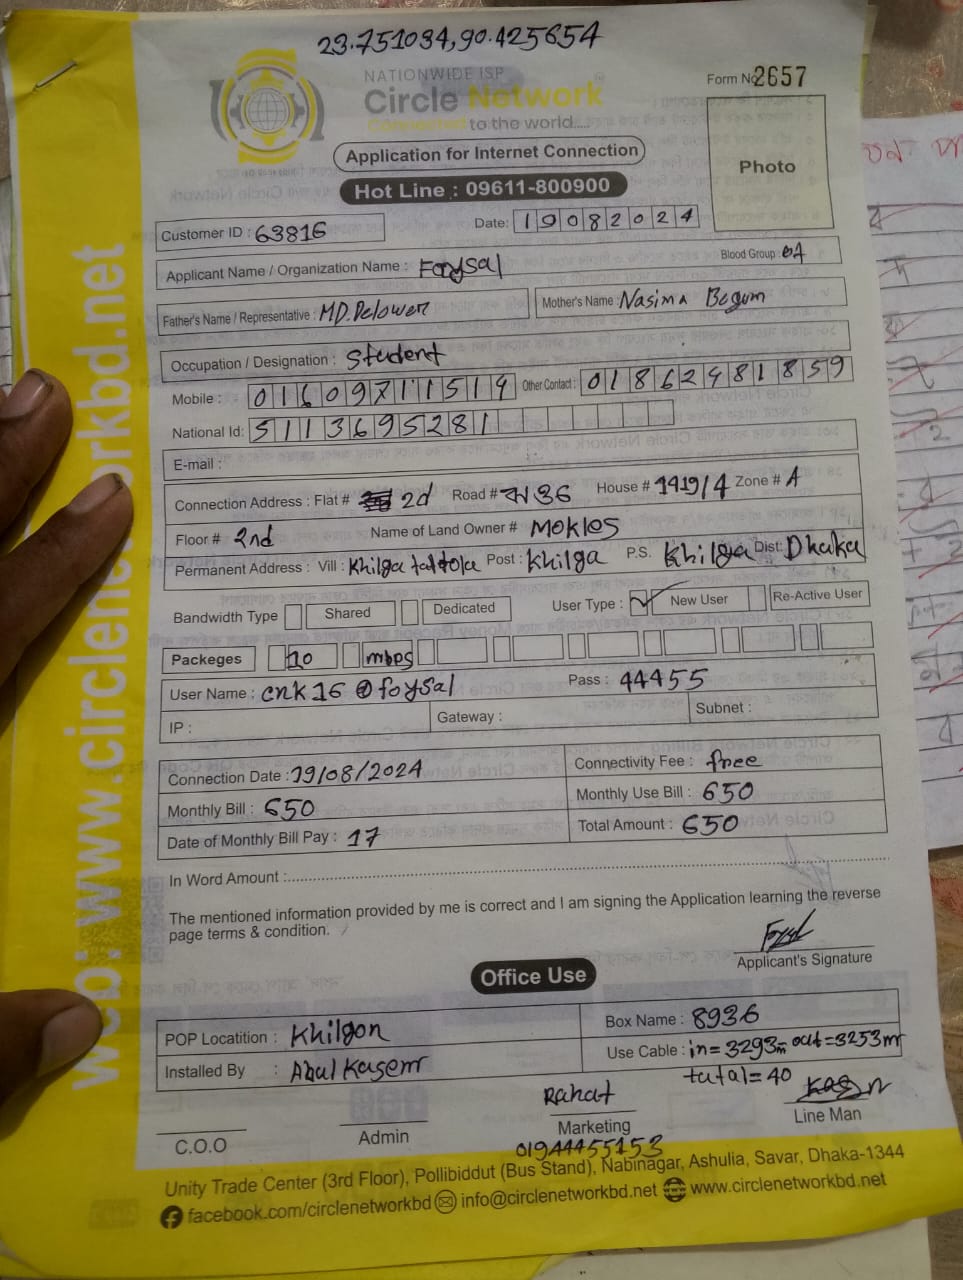 23.751034,90.425654
NATIONWIDE ISP
Circle Network
Connected to the world....
Form No 2657
Application for Internet Connection
Photo
Hot Line : 09611-800900
Customer ID : 63816
Date: 19082024
Applicant Name / Organization Name : Foysal
Blood Group :
Father's Name / Representative : MD. Delower
Mother's Name : Nasima Begum
Occupation / Designation : Student
Mobile : 01609711519 Other Contact : 01862481859
National Id: 5113695281
E-mail :
Connection Address : Flat # 2d Road # House # 1419/4 Zone # A
Floor # 2nd Name of Land Owner # Mokles
Permanent Address : Vill : Khilga taltola Post : Khilga P.S. Khilga Dist: Dhaka
Bandwidth Type Shared Dedicated User Type : New User Re-Active User
Packeges 10 mbps
User Name : cnk16@foysal Pass : 44455
IP : Gateway : Subnet :
Connection Date : 19/08/2024 Connectivity Fee : free
Monthly Bill : 650 Monthly Use Bill : 650
Date of Monthly Bill Pay : 17 Total Amount : 650
In Word Amount :
The mentioned information provided by me is correct and I am signing the Application learning the reverse
page terms & condition.
Applicant's Signature
Office Use
POP Locatition : Khilgon Box Name : 8936
Installed By : Abul Kasem Use Cable : in=3293m out=3253m
tutal=40
Rahat
C.O.O Admin Marketing Line Man
01944455153
Unity Trade Center (3rd Floor), Pollibiddut (Bus Stand), Nabinagar, Ashulia, Savar, Dhaka-1344
facebook.com/circlenetworkbd info@circlenetworkbd.net www.circlenetworkbd.net
web: www.circlenetworkbd.net